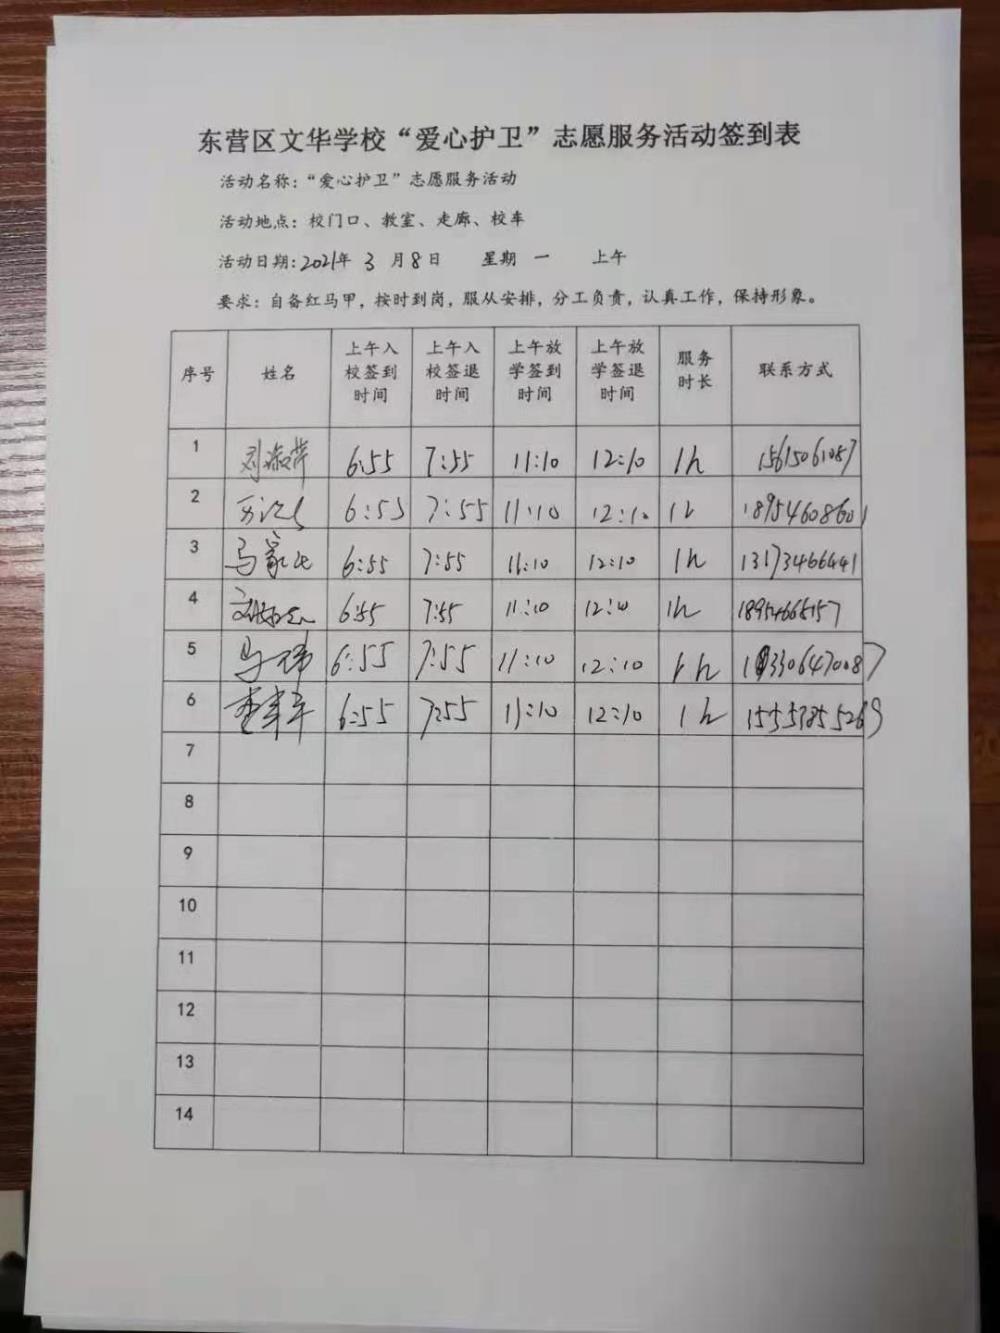 东营区文华学校“爱心护卫”志愿服务活动签到表
活动名称：“爱心护卫”志愿服务活动
活动地点：校门口、教室、走廊、校车
活动日期：2021年 3 月 8 日 星期 一 上午
要求：自备红马甲，按时到岗，服从安排，分工负责，认真工作，保持形象。
序号 姓名 上午入校签到时间 上午入校签退时间 上午放学签到时间 上午放学签退时间 服务时长 联系方式
1 刘淑萍 6:55 7:55 11:10 12:10 1h 15615061087
2 6:55 7:55 11:10 12:10 1h 18954608601
3 6:55 7:55 11:10 12:10 1h 13173466441
4 6:55 7:55 11:10 12:10 1h
5 马伟 6:55 7:55 11:10 12:10 1h 13306470087
6 6:55 7:55 11:10 12:10 1h
7
8
9
10
11
12
13
14